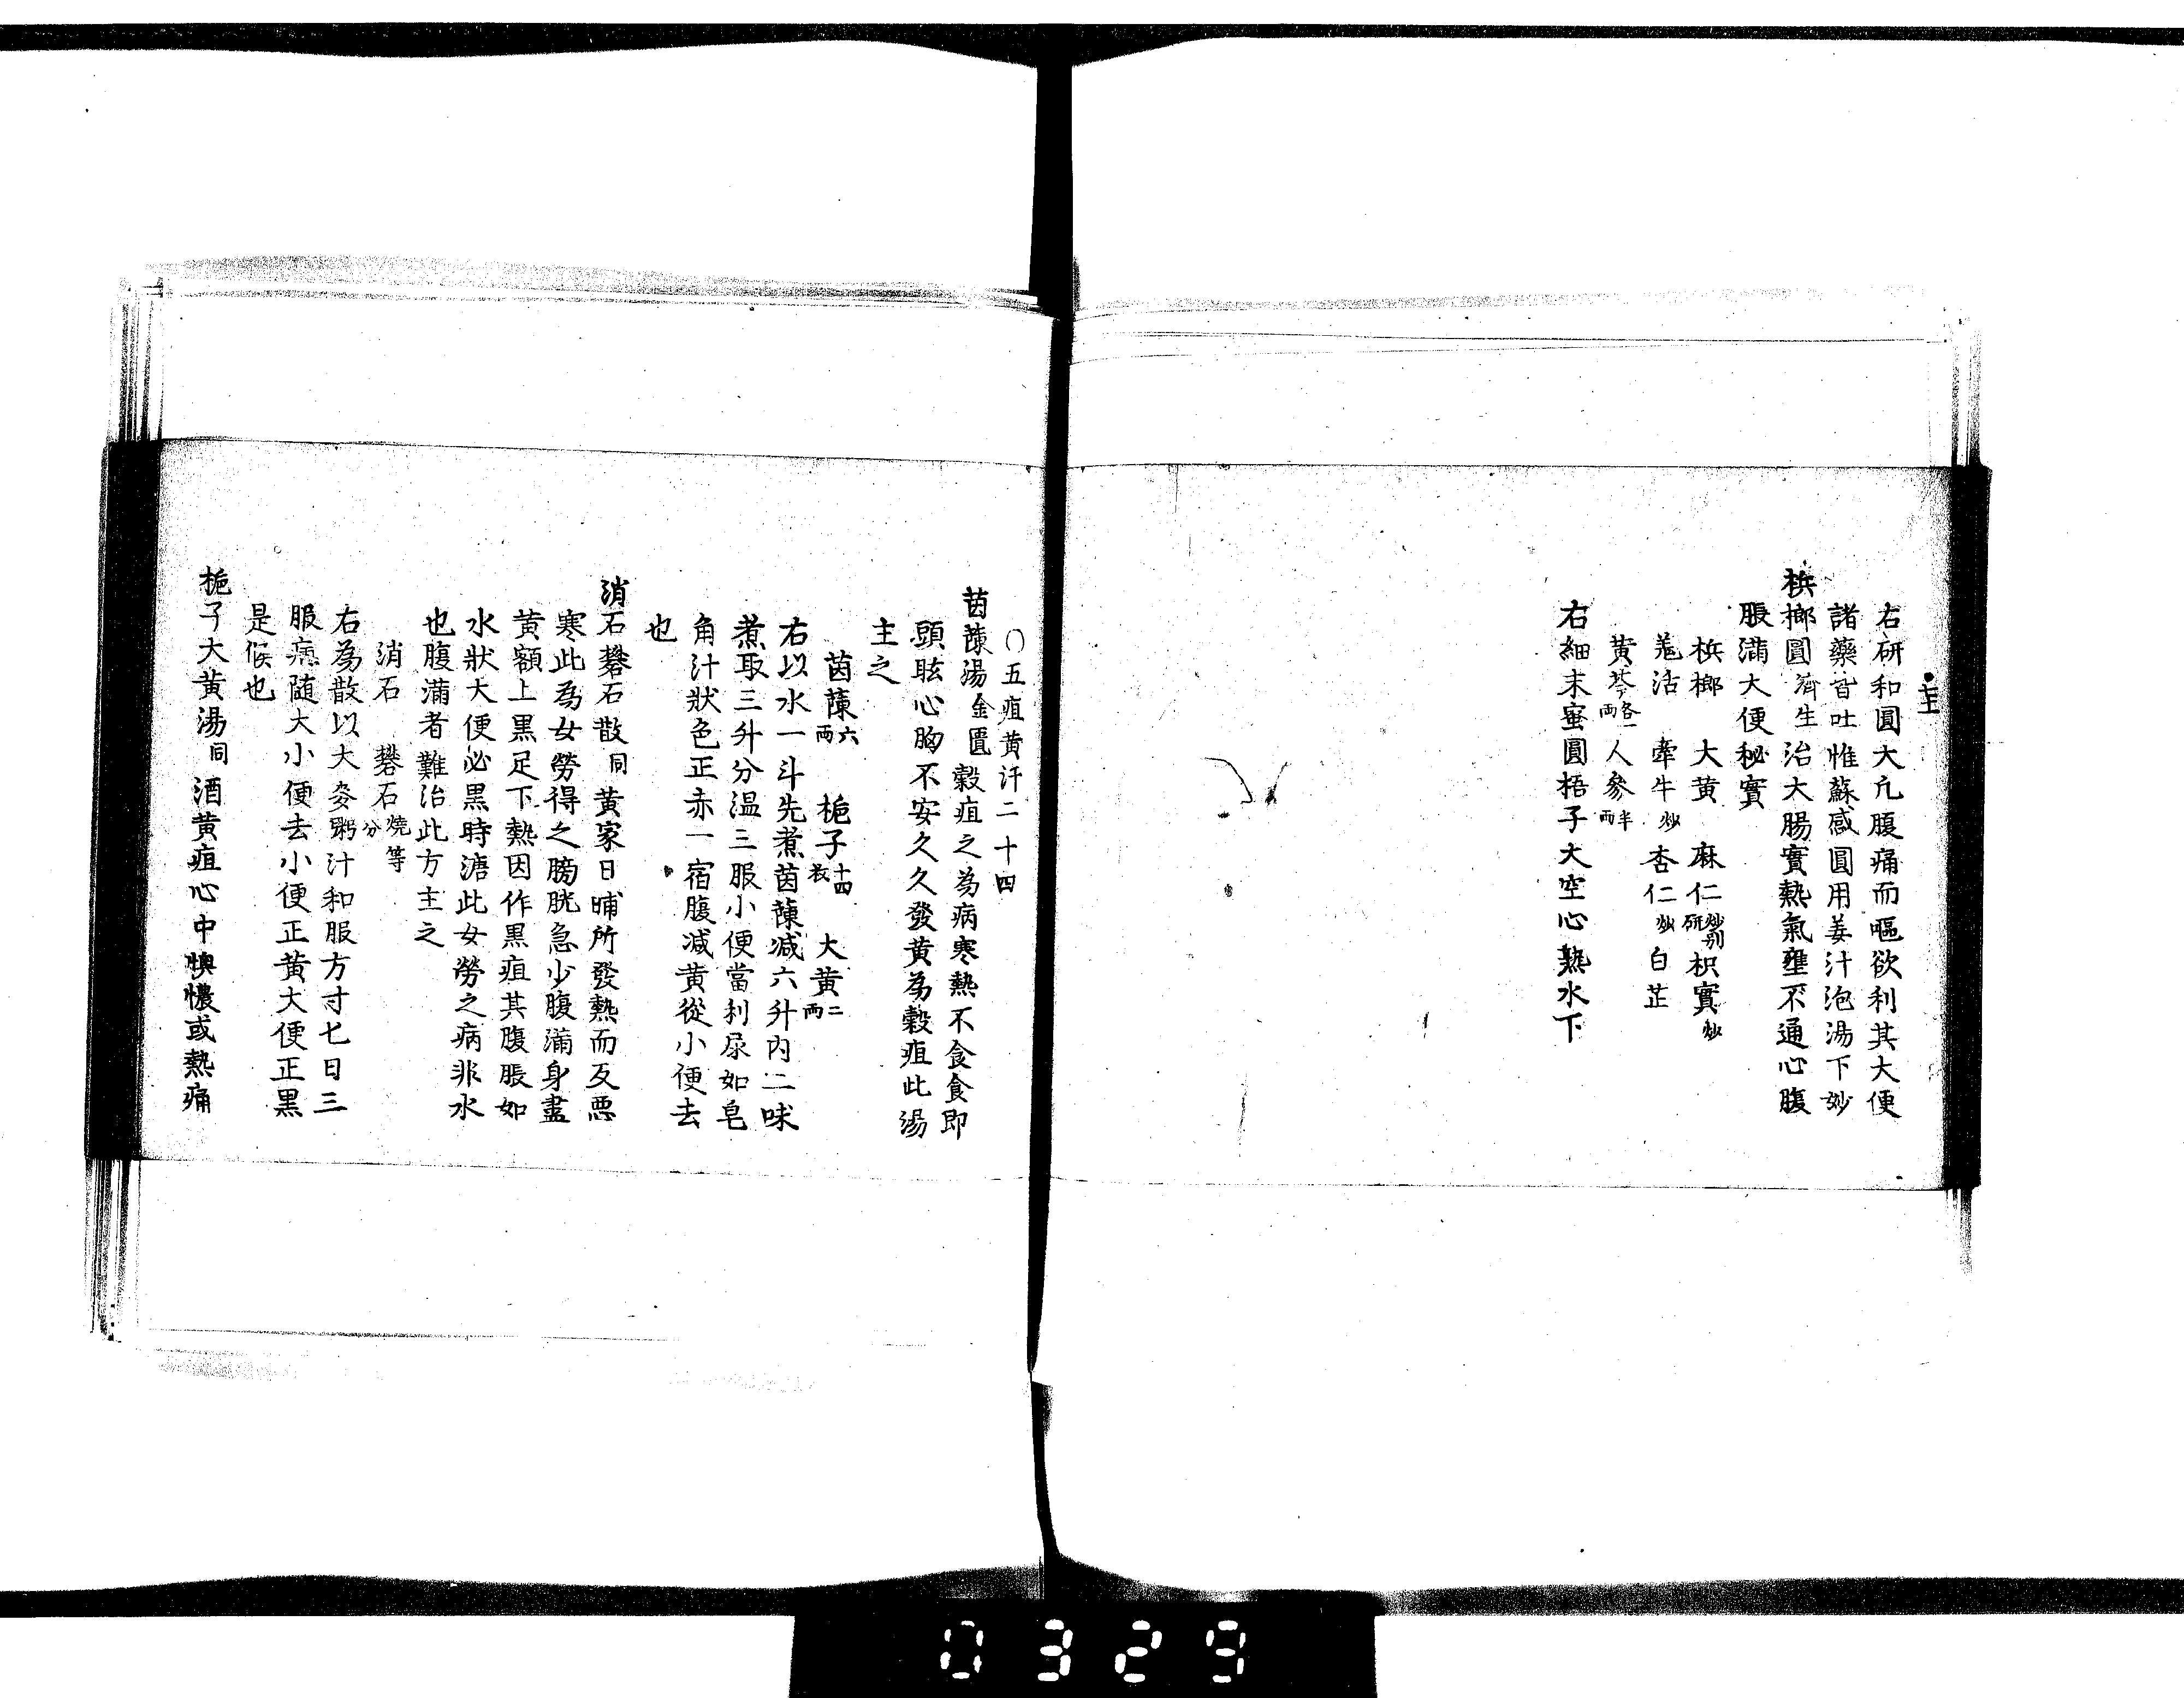 右研和圓大凢腹痛而嘔欲利其大便
諸藥皆吐惟蘇感圓用姜汁泡湯下妙
檳榔圓濟生治大腸實熱氣壅不通心腹
脹滿大便秘實
檳榔 大黄 麻仁炒別研 枳實炒
羗活 牽牛炒 杏仁炒 白芷
黄芩各一両 人參半両
右細末蜜圓梧子大空心熟水下
〇五疸黄汗二十四
茵蔯湯金匱穀疸之為病寒熱不食食即
頭眩心胸不安久久發黄為穀疸此湯
主之
茵蔯六両 梔子十四枚 大黄二両
右以水一斗先煮茵蔯减六升内二味
煮取三升分温三服小便當利尿如皂
角汁狀色正赤一宿腹减黄從小便去
也
消石礬石散同黄家日晡所發熱而反惡
寒此為女勞得之膀胱急少腹滿身盡
黄額上黒足下熱因作黒疸其腹脹如
水狀大便必黒時溏此女勞之病非水
也腹滿者難治此方主之
消石 礬石燒等分
右為散以大麥粥汁和服方寸匕日三
服病随大小便去小便正黄大便正黒
是候也
梔子大黄湯同酒黄疸心中懊憹或熱痛
0329